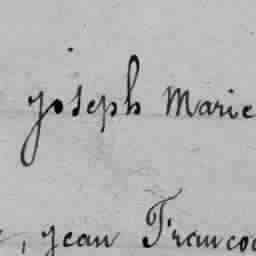 joseph Marie
, jean Francoi